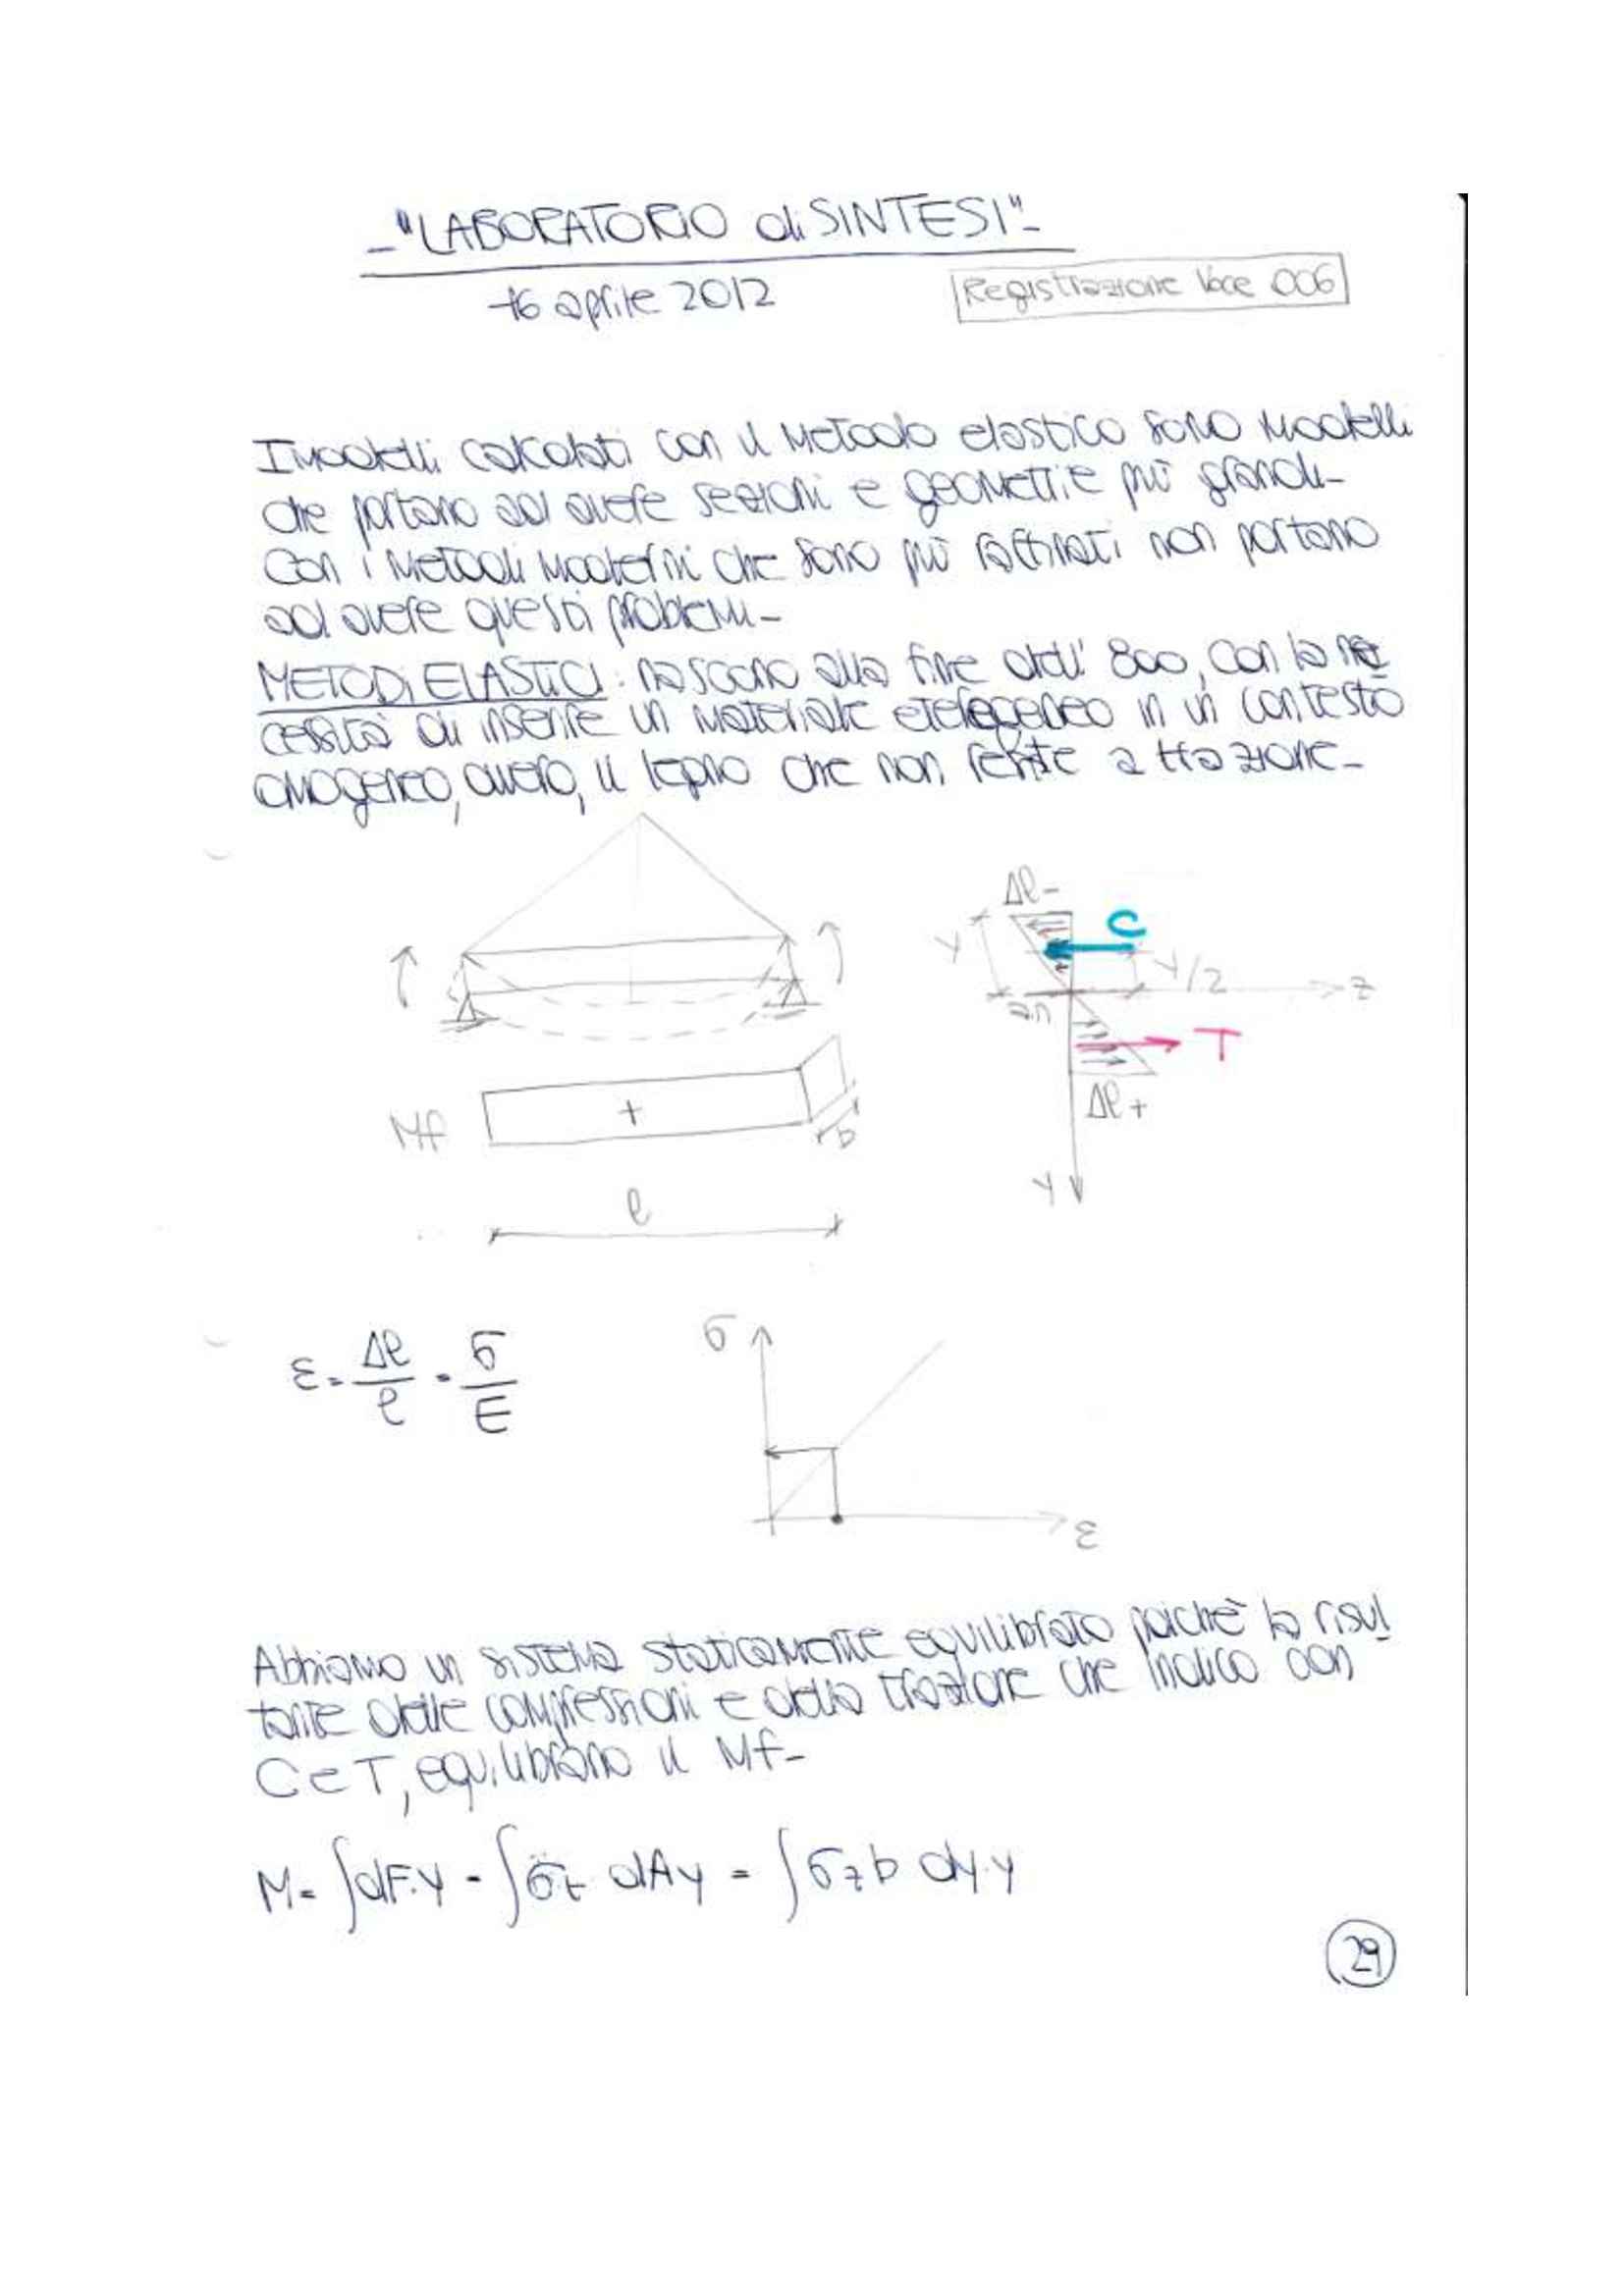 -"LABORATORIO di SINTESI"-
16 aprile 2012
Registrazione Voce 006
I modelli calcolati con il metodo elastico sono modelli
che portano ad avere sezioni e geometrie più grandi-
Con i metodi moderni che sono più raffinati non portano
ad avere questi problemi-
METODI ELASTICI: nascono alla fine dell' 800, con la ne
cessità di inserire un materiale eterogeneo in un contesto
omogeneo, ovvero, il legno che non resiste a trazione-
Δl-
C
y
y/2
z
a.n
T
Δl+
Mf
+
b
y
l
σ
ε = Δl/l = σ/E
ε
Abbiamo un sistema staticamente equilibrato poichè la risul
tante delle compressioni e della trazione che indico con
C e T, equilibrano il Mf-
M = ∫dF·y = ∫σz dA y = ∫σz b dy·y
29